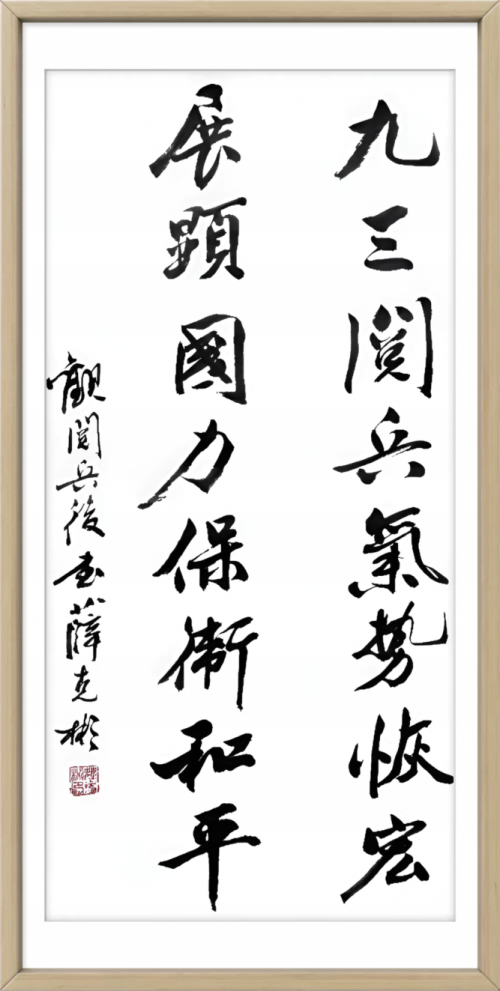 九三閱兵氣势恢宏
展顕國力保衛和平
觀閱兵後書薛克彬